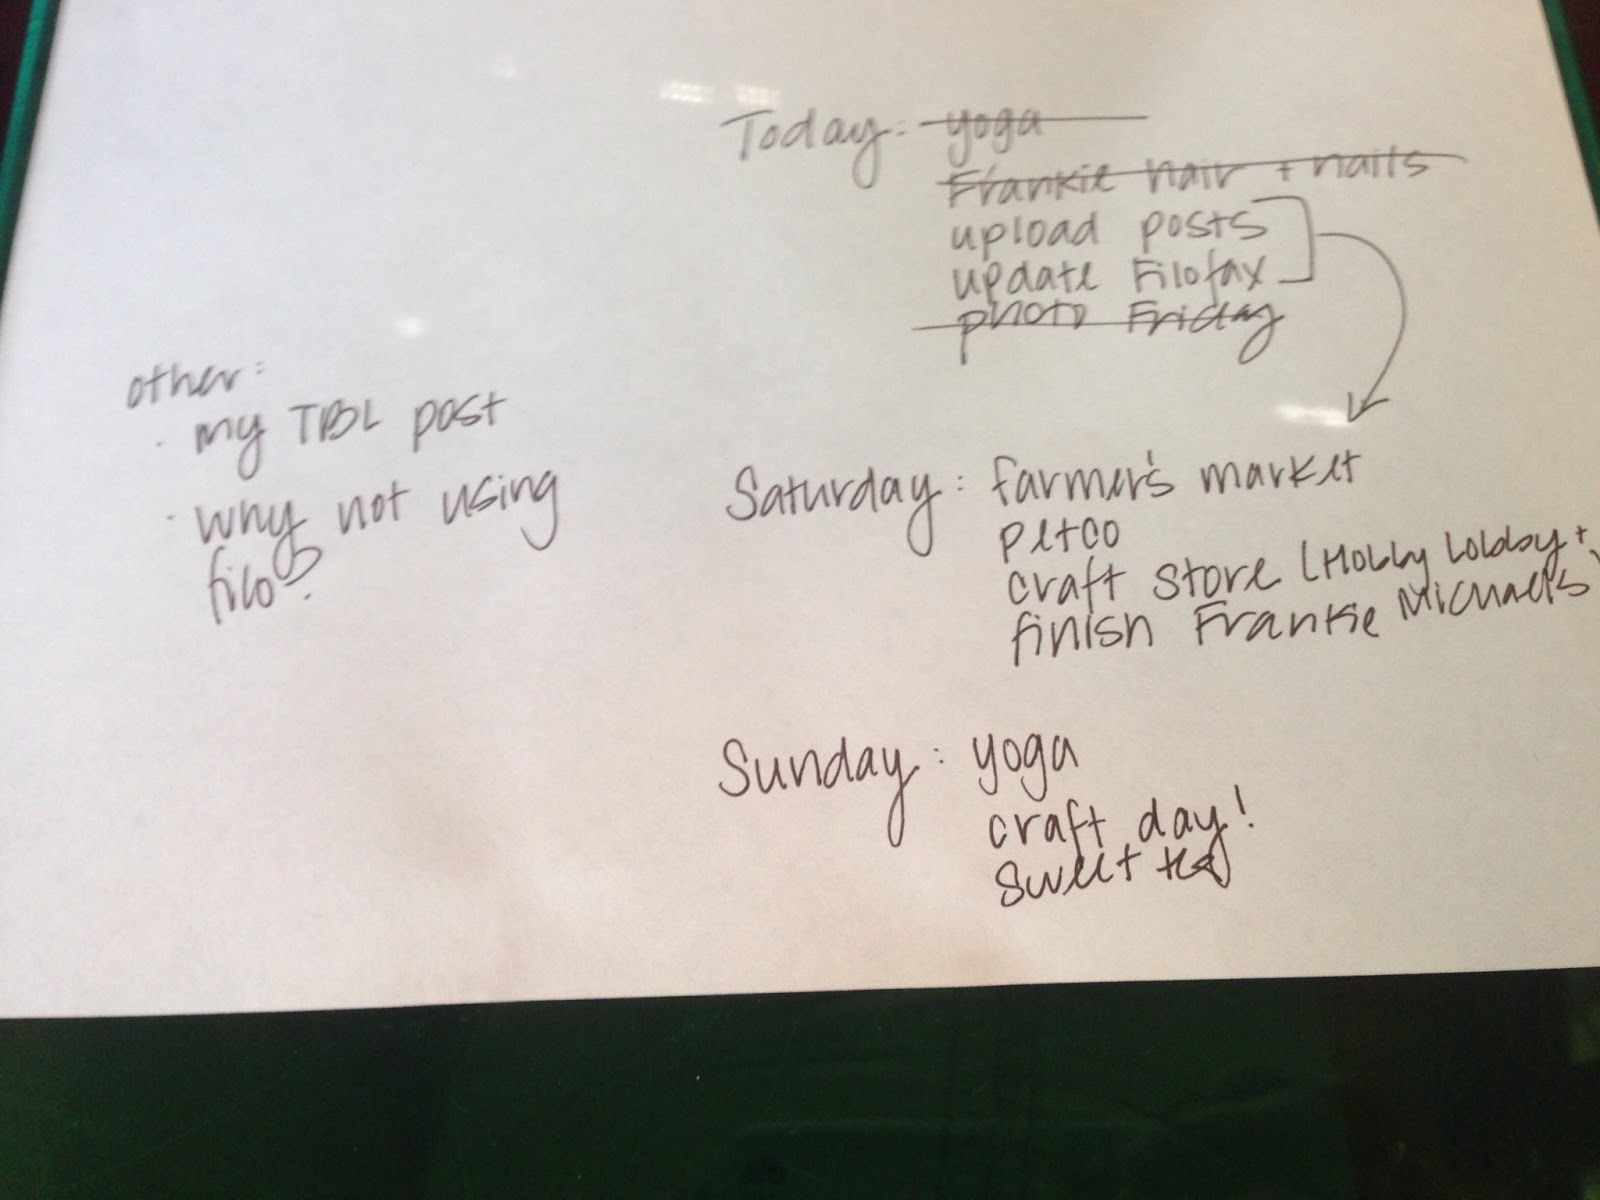 Today: yoga
Frankie hair + nails
upload posts
update Filofax
photo Friday
other:
· my TBL post
· why not using
filo?
Saturday: farmer's market
petco
craft store (Hobby Lobby +
Michaels)
finish Frankie
Sunday: yoga
craft day!
Sweet tea